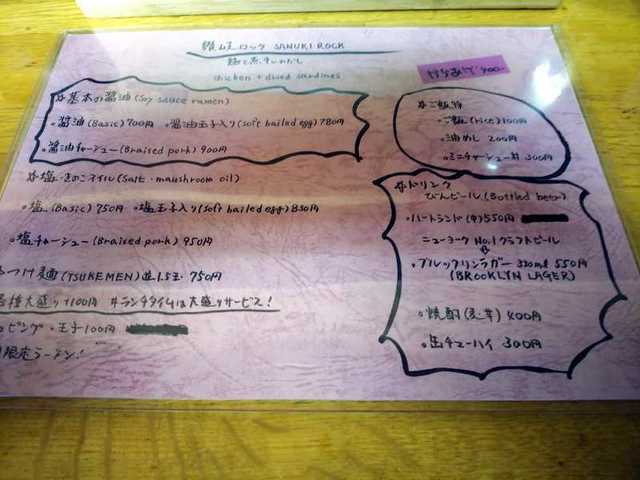 讃岐ロック SANUKI ROCK
鶏と煮干しだし
chicken + dried sardines
からあげ 400-
☆基本の醤油 (Soy sauce ramen)
・醤油 (Basic) 700円 ・醤油玉子入り (Soft bailed egg) 780円
・醤油チャーシュー (Braised pork) 900円
☆塩・きのこオイル (Salt・maushroom oil)
・塩 (Basic) 750円 ・塩玉子入り (Soft bailed egg) 830円
・塩チャーシュー (Braised pork) 950円
つけ麺 (TSUKEMEN) 並1.5玉 750円
各種大盛り+100円 #ランチタイムは大盛りサービス!
ピング・玉子100円
限定ラーメン!
☆ご飯物
・ご飯 (rice) 100円
・油めし 200円
・ミニチャーシュー丼 300円
☆ドリンク
びんビール (Bottled beer)
・ハートランド (中) 550円
ニューヨーク No.1 クラフトビール
・ブルックリンラガー 330ml 550円
(BROOKLYN LAGER)
・焼酎 (麦・芋) 400円
・缶チューハイ 300円